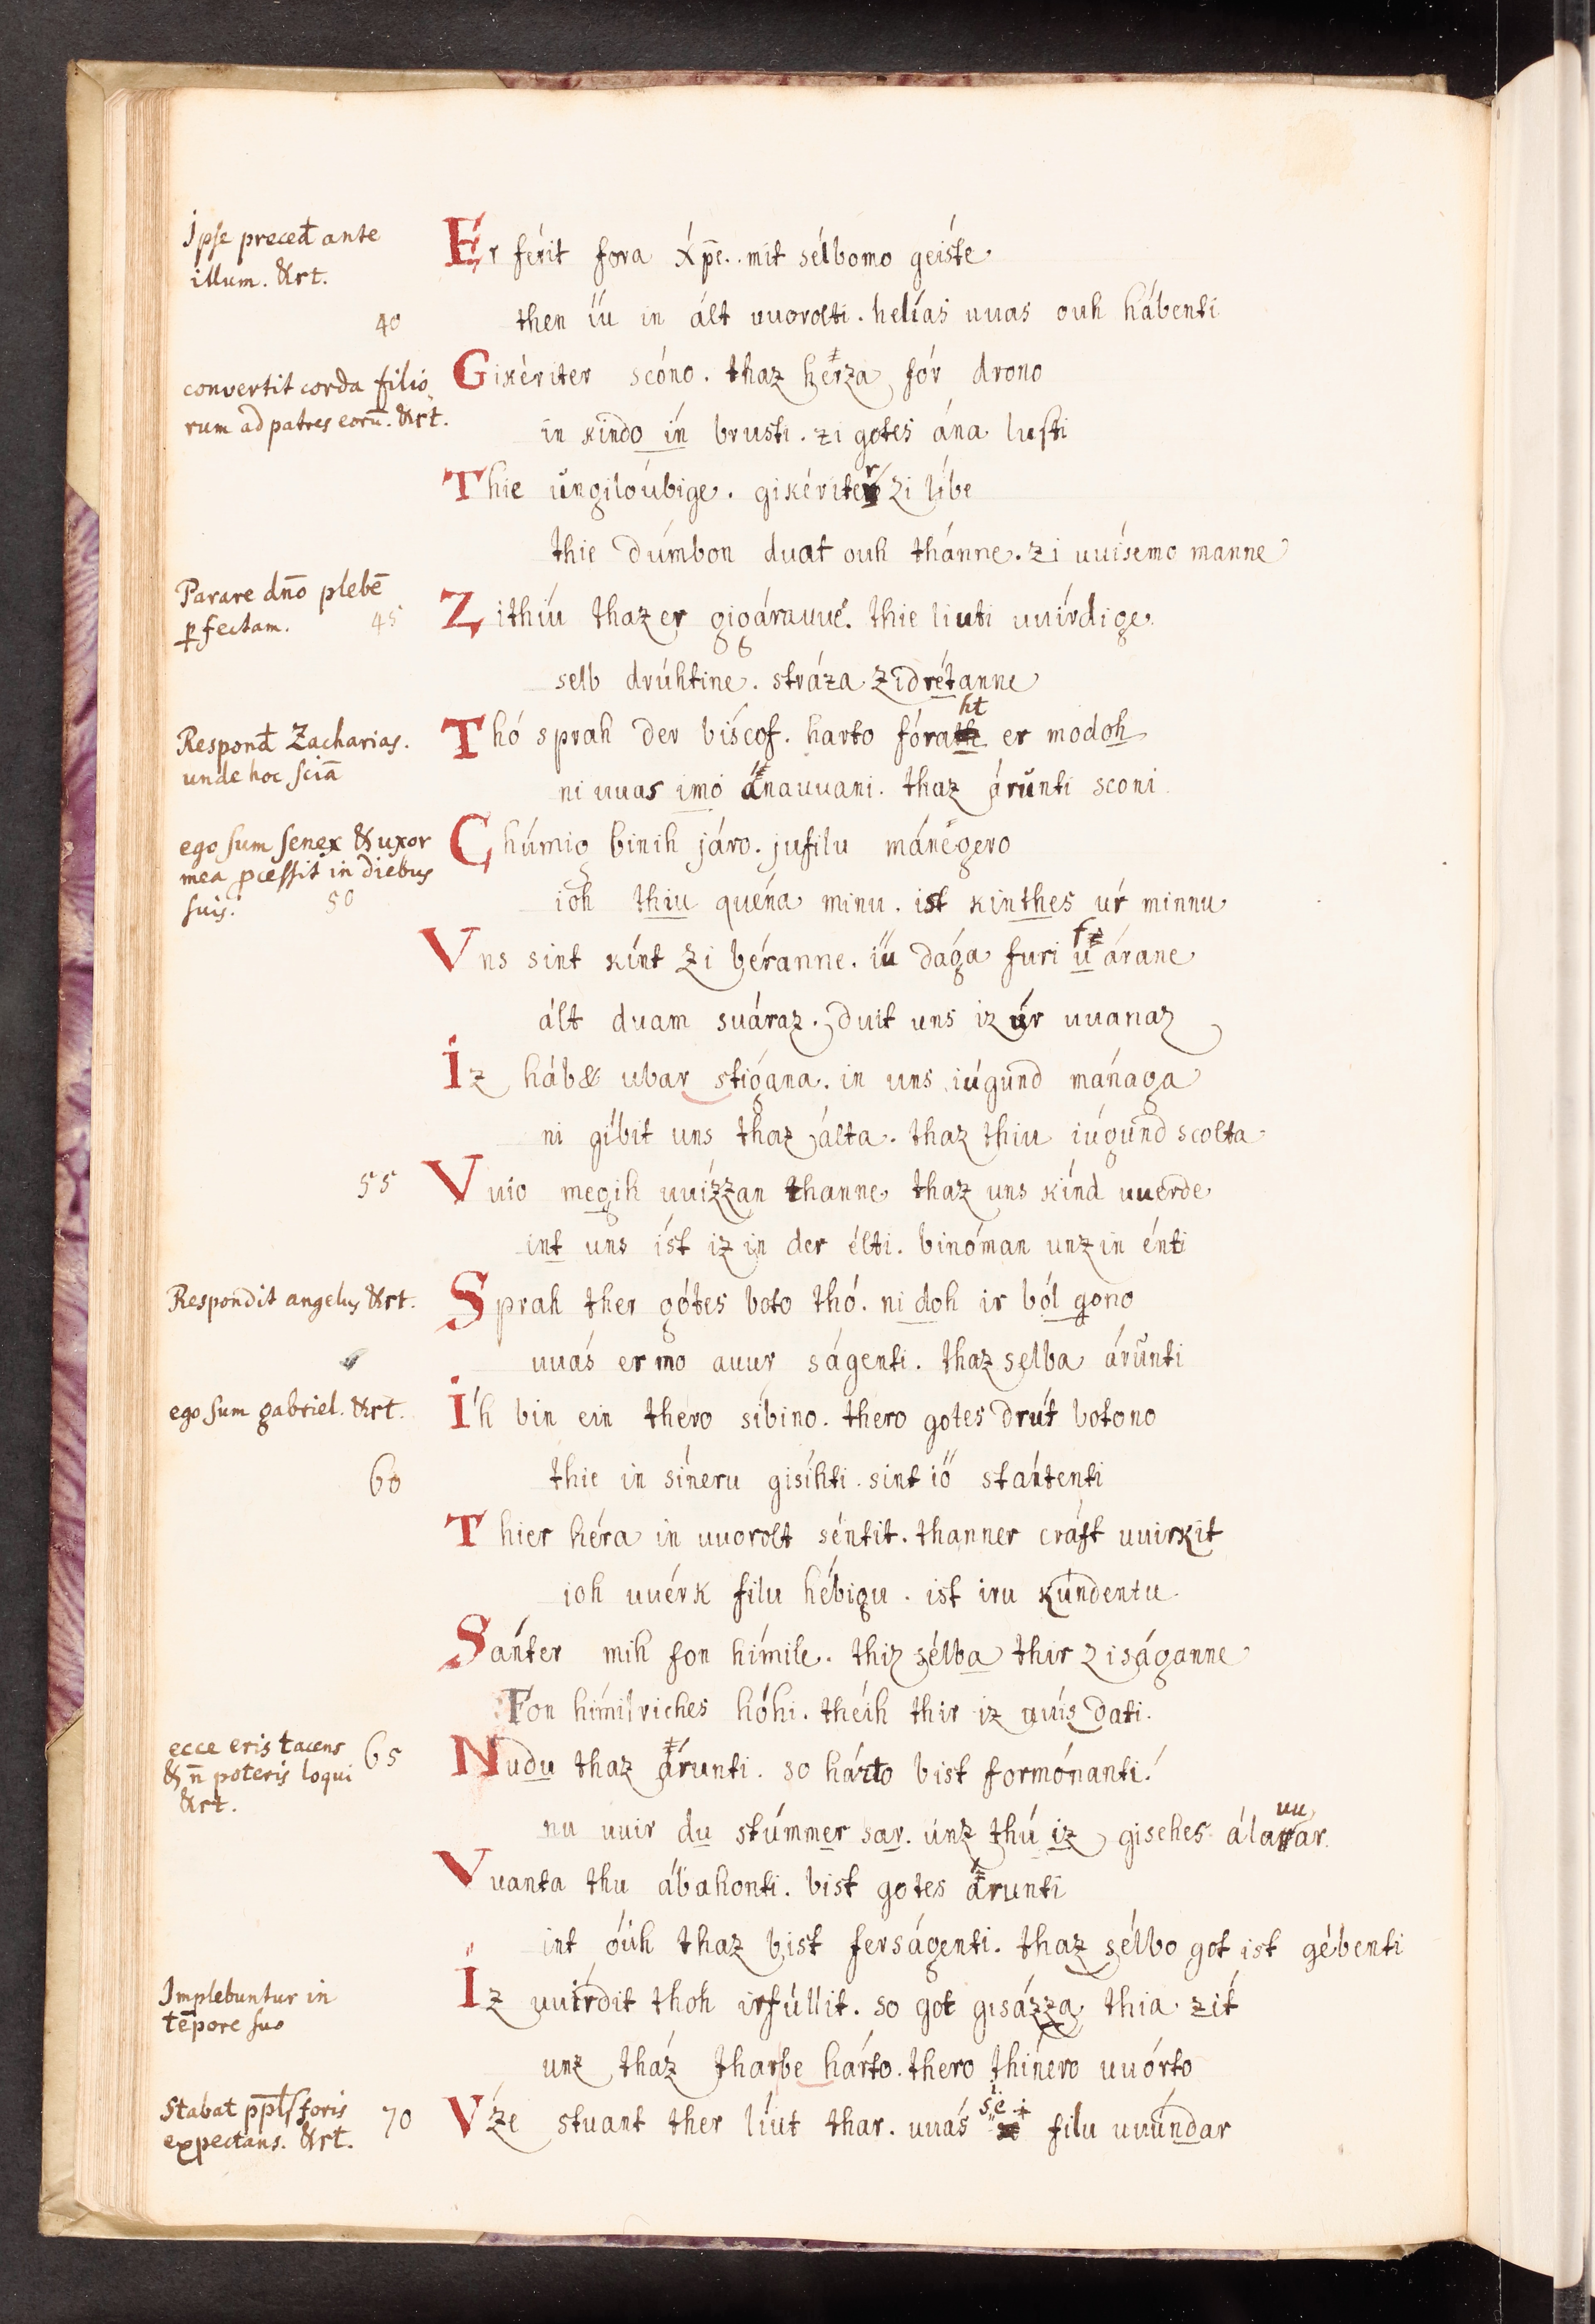 Ipse preced̄ ante
illum. &rt.
Er férit fora x́p̄e. mit sélbomo geiste
40
then íu in ált uuorolti. helías uuas ouh hábenti
convertit corda filio
rum ad patres eorū. &rt.
Gikériter scóno. thaz herza fór drono
in kindo in brusti. zi gotes ána lusti
Thie úngilóubige. gikériter zi líbe
thie dúmbon duat ouh thánne. zi uuísemo manne
Parare dn̄o plebē
ꝑfectam.
45
Zithiu thaz er gigárauue. thie liuti uuírdige
selb drúhtine. stráza zidrétanne
Respond̄ Zacharias.
unde hoc sciā
Thó sprah der bíscof. harto fóraht er modoh
ni uuas imo ánauuani. thaz árunti sconi
ego sum senex & uxor
mea ꝓcessit in diebus
suis.
50
Chúmig binih járo. jufilu mánegero
ioh thiu quéna minu. ist kinthes úr minnu
Vns sint kínt zi béranne. iu dága furi uárane
ált duam suáraz. duit uns iz úr uuanaz
Iz háb& ubar stígana. in uns iúgund mánaga
ni gíbit uns thaz álta. thaz thiu iúgund scolta
55
Vuio megih uuízzan thanne thaz uns kínd uuerde
int uns íst iz in der élti. binóman unzin énti
Respondit angelus &rt.
Sprah ther gótes boto thó. ni doh ir ból gono
uuás er mo auur ságenti. thaz selba árunti
ego sum gabriel. &rt.
Íh bin ein thero síbino. thero gotes drút botono
60
thie in síneru gisíhti. sint ió stántenti
Thier héra in uuorolt séntit. thanner cráft uuirkit
ioh uuérk filu hébigu. ist iru kúndentu
Sánter mih fon hímile. thiz sélba thir ziságanne
Fon hímilriches hóhi. théih thir iz uuís dati.
ecce eris tacens
& n̄ poteris loqui
&rt.
65
Nudu thaz árunti. so hárto bist formónanti.
nu uuir du stúmmer sar. únz thú iz gisehes álauuar
Vuanta thu ábahonti. bist gotes árunti
int óuh thaz bist ferságenti. thaz sélbo got ist gébenti
Implebuntur in
tēpore suo
Iz uuírdit thoh irfúllit. so got gisázza thia zít
unz tház tharbe hárto. thero thínero uuórto
Stabat pp̄ls foris
expectans. &rt.
70
Vze stuant ther líut thar. uuás sie filu uuúndar